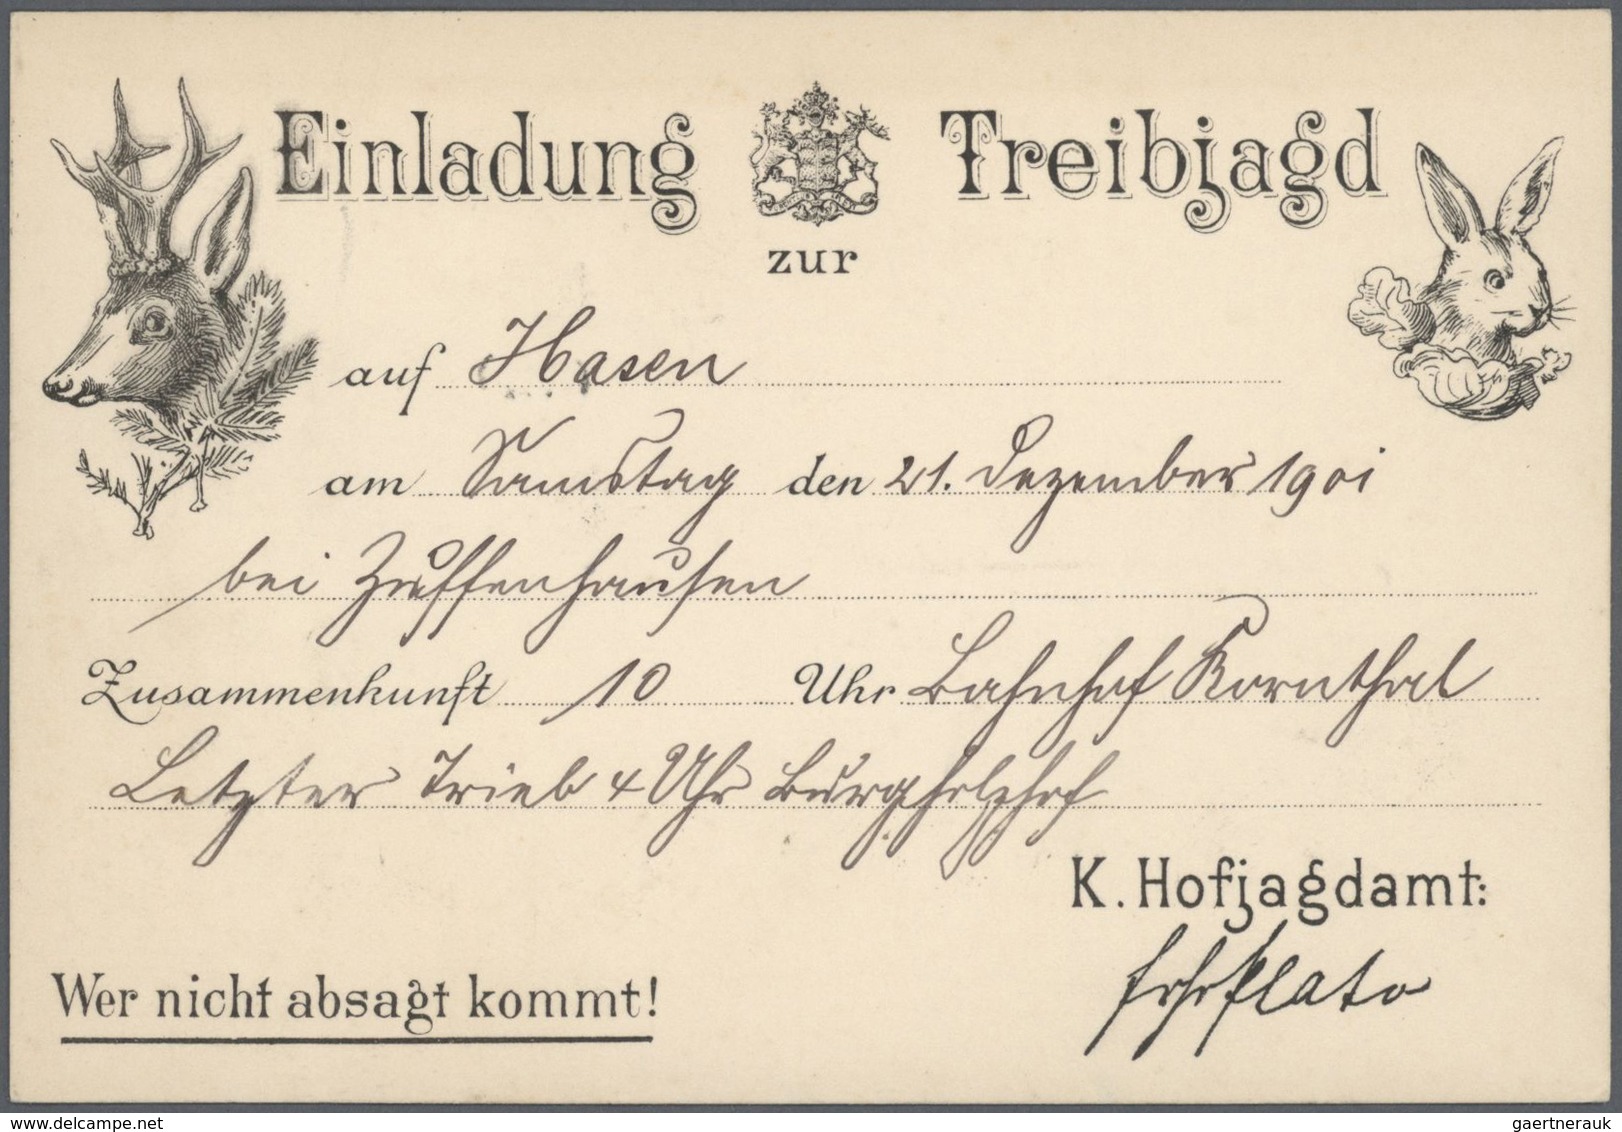 Einladung Treibjagd
zur
auf Hasen
am Samstag den 21. Dezember 1901
bei Zuffenhausen
Zusammenkunft 10 Uhr Bahnhof Kornthal
Letzter Trieb 4 Uhr Burgholzhof
K. Hofjagdamt:
Plato
Wer nicht absagt kommt!
delcampe.net
gaertnerauk